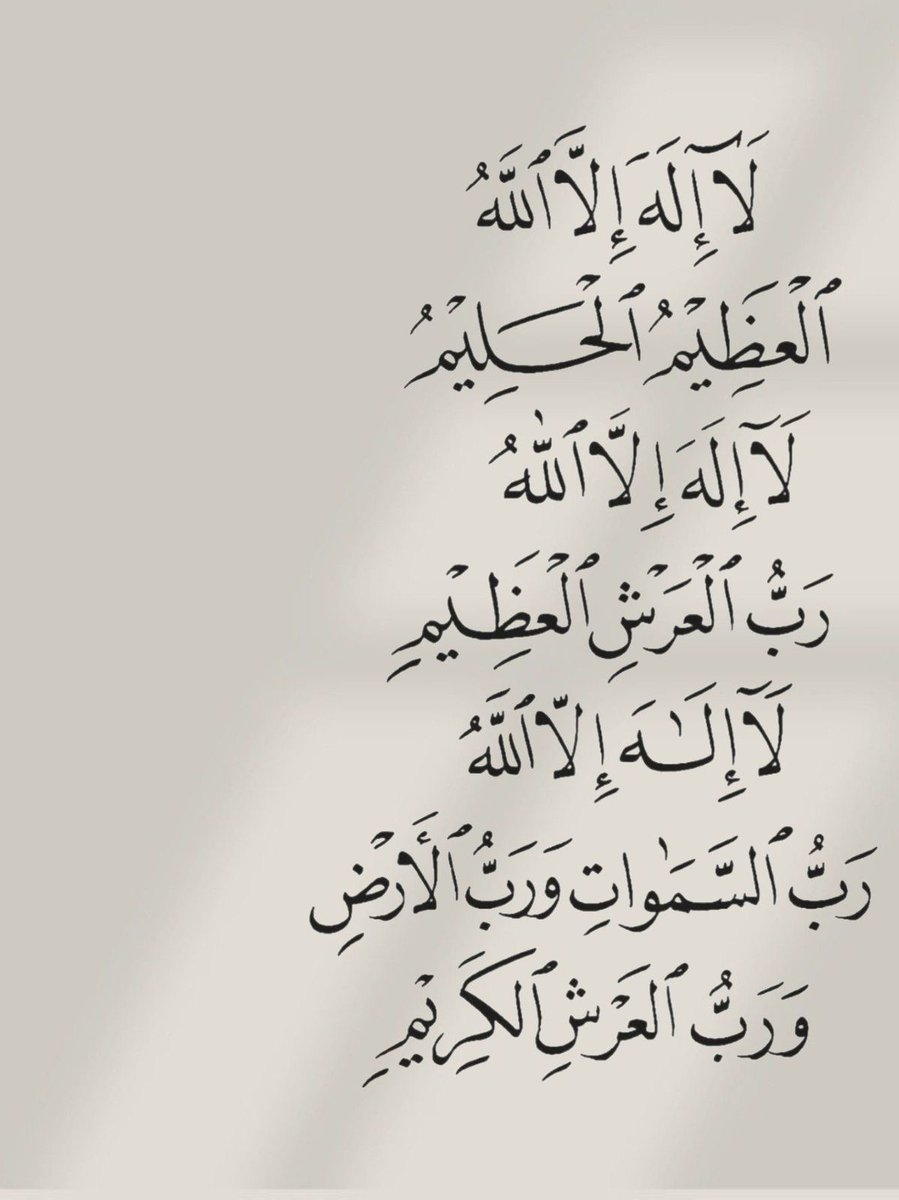 لَآ إِلَهَ إِلَّا ٱللَّهُ
ٱلْعَظِيْمُ ٱلْحَلِيْمُ
لَآ إِلَهَ إِلَّا ٱللّٰهُ
رَبُّ ٱلْعَرْشِ ٱلْعَظِيْمِ
لَآ إِلَٰهَ إِلَّا ٱللَّهُ
رَبُّ ٱلسَّمَٰواتِ وَرَبُّ ٱلْأَرْضِ
وَرَبُّ ٱلعَرْشِ ٱلكَرِيْمِ